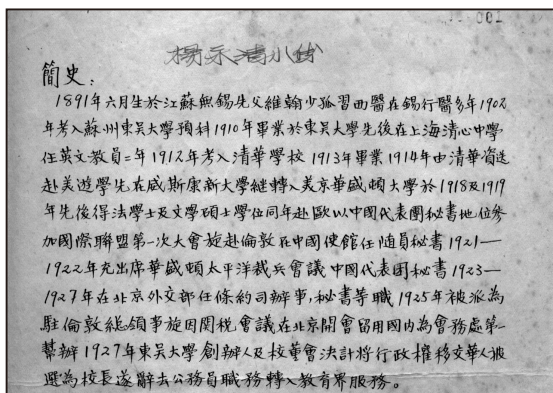 001
楊永清小傳
簡史：
1891年六月生於江蘇無錫先父維翰少孤習西醫在錫行醫多年1902
年考入蘇州東吳大學預科1910年畢業於東吳大學先後在上海清心中學
任英文教員二年1912年考入清華學校1913年畢業1914年由清華資送
赴美遊學先在威斯康新大學繼轉入美京華盛頓大學於1918及1919
年先後得法學士及文學碩士學位同年赴歐以中國代表團秘書地位參
加國際聯盟第一次大會旋赴倫敦在中國使館任隨員秘書1921—
1922年充出席華盛頓太平洋裁兵會議中國代表團秘書1923—
1927年在北京外交部任條約司辦事，秘書等職1925年被派為
駐倫敦總領事旋因関稅會議在北京開會留用國內為會務處第一
幫辦1927年東吳大學創辦人及校董會決計將行政權移交華人被
選為校長遂辭去公務員職務轉入教育界服務。